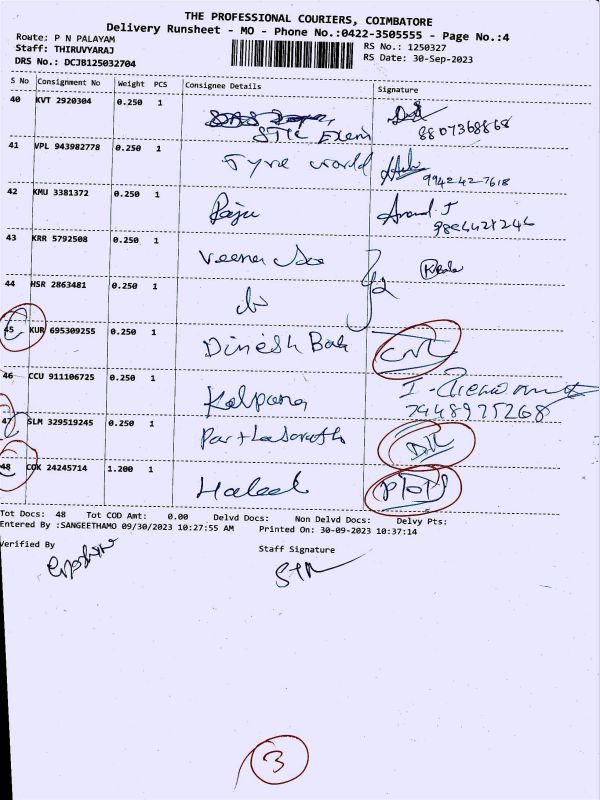 THE PROFESSIONAL COURIERS, COIMBATORE
Delivery Runsheet - MO - Phone No.:0422-3505555 - Page No.:4
Route: P N PALAYAM
RS No.: 1250327
Staff: THIRUVYARAJ
RS Date: 30-Sep-2023
DRS No.: DCJB125032704
S No Consignment No Weight PCS Consignee Details Signature
40 KVT 2920304 0.250 1
STIC Exam 8807368868
41 VPL 943982778 0.250 1
Tyre world 994242-7618
42 KMU 3381372 0.250 1
Raju Anand. J
43 KRR 5792508 0.250 1
Veena
44 HSR 2863481 0.250 1
do
45 KUR 695309255 0.250 1
Dinesh Bab CNL
46 CCU 911106725 0.250 1
Kalpana 7448975268
47 SLM 329519245 0.250 1
Parthasarath DIL
48 COK 24245714 1.200 1
Haleel
Tot Docs: 48 Tot COD Amt: 0.00 Delvd Docs: Non Delvd Docs: Delvy Pts:
Entered By :SANGEETHAMO 09/30/2023 10:27:55 AM Printed On: 30-09-2023 10:37:14
Verified By Staff Signature
3